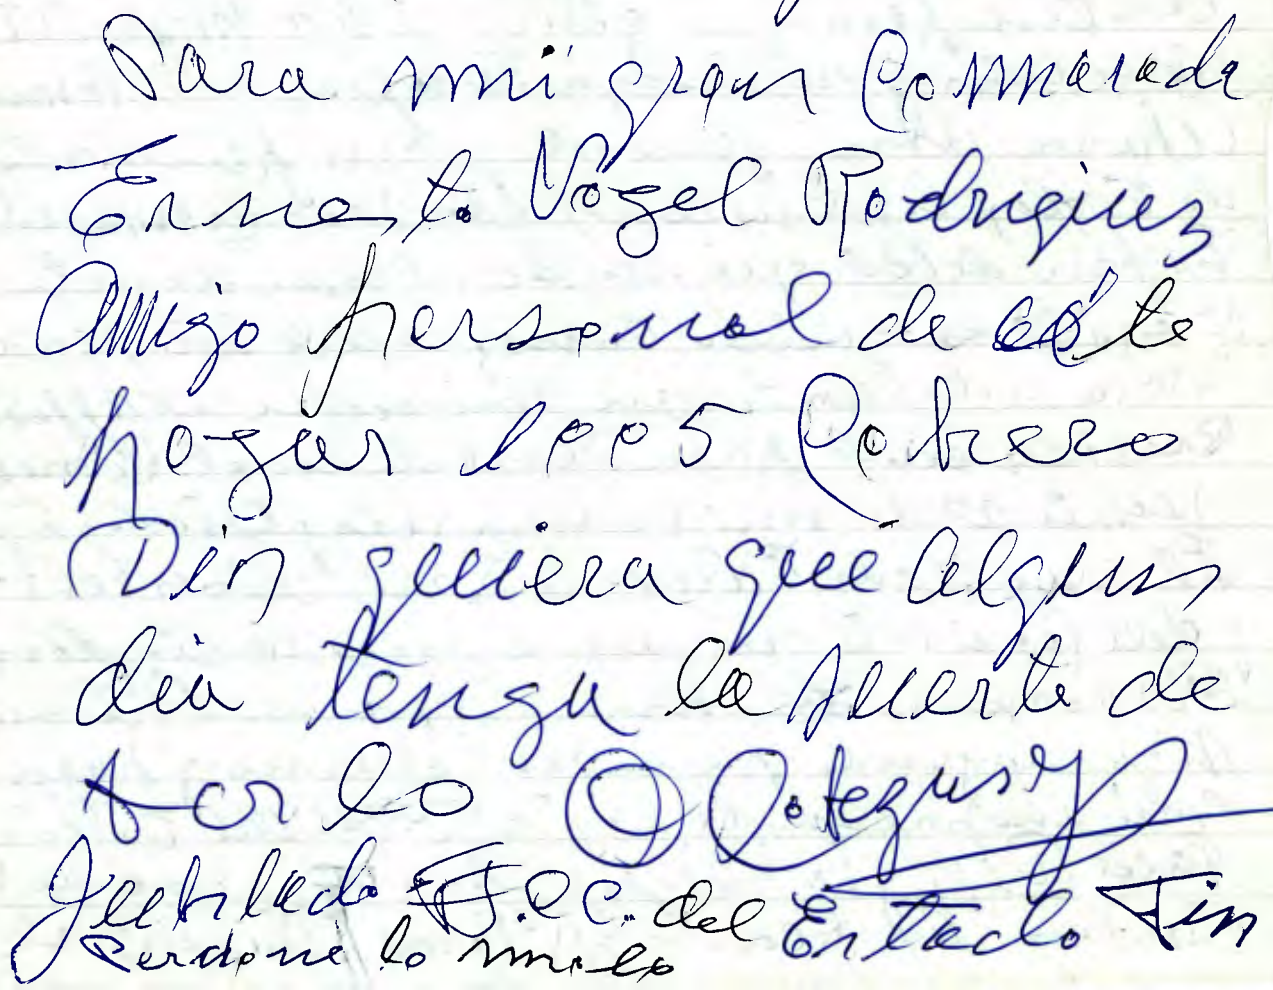 Para mi gran Commarada
Ernesto Vogel Rodriguez
Amigo personal de éste
hogar 1005 Cobrero
Din quiera que algun
dia tenga la suerte de
lo
Jubilado F.C.C. del Estado Fin
Perdone lo malo